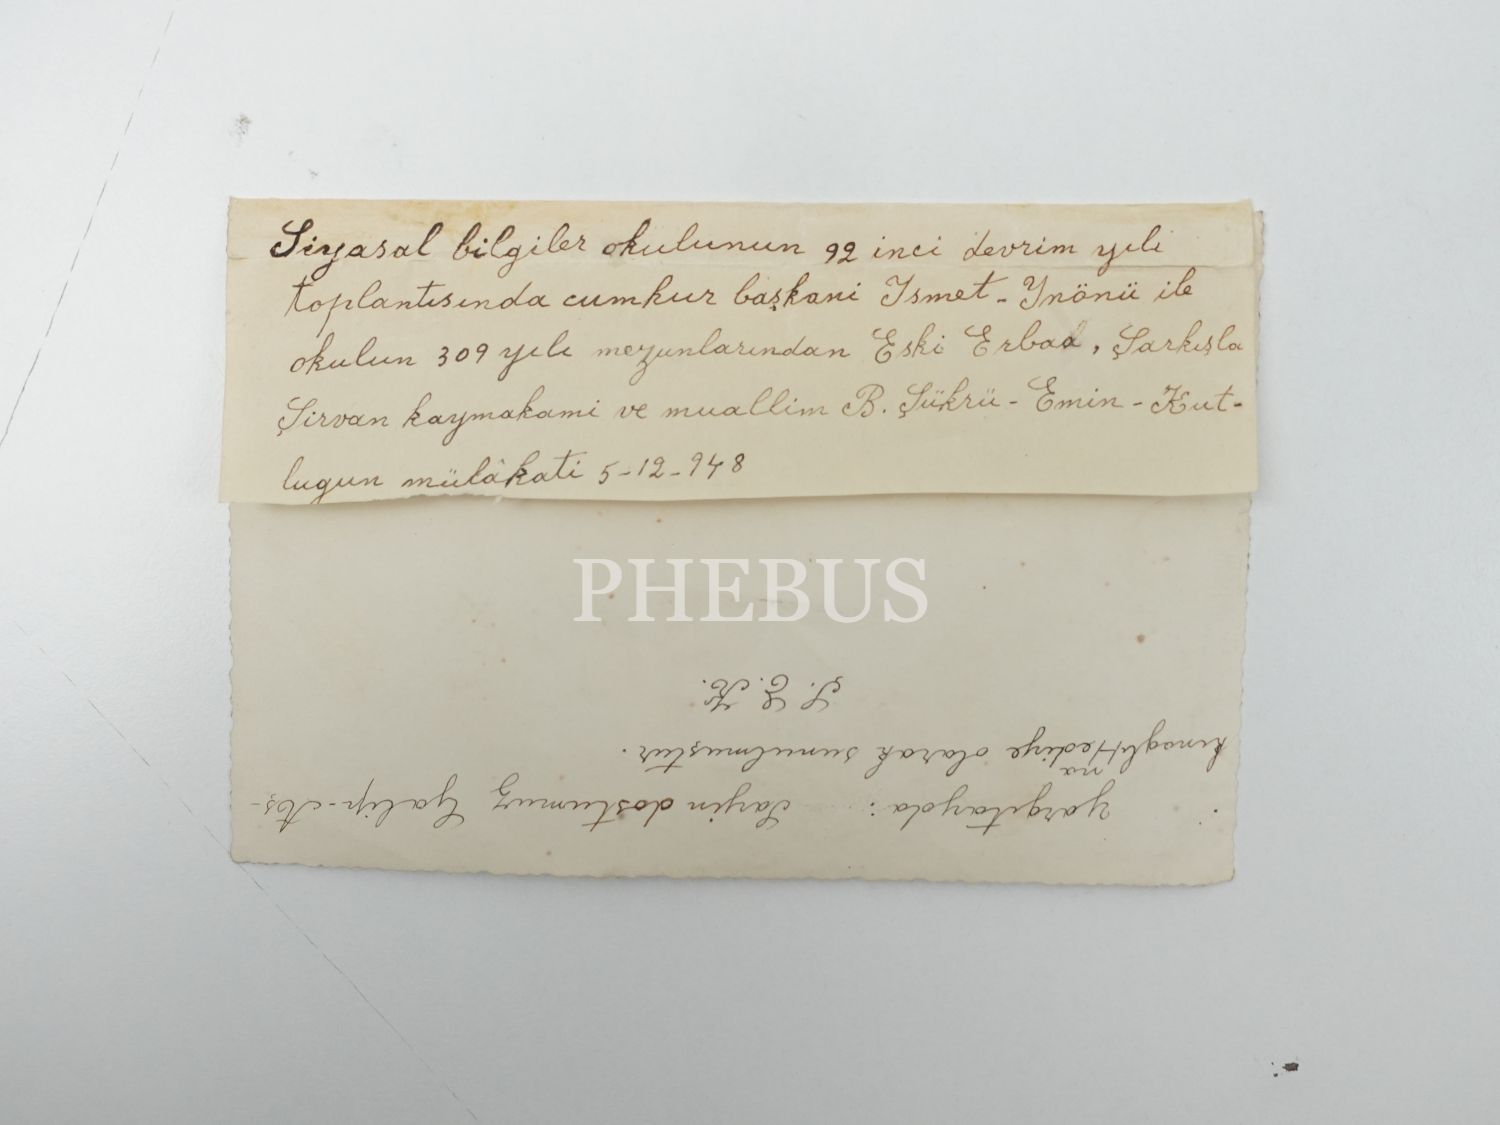 Siyasal bilgiler okulunun 92 inci devrim yılı
toplantısında cumhur başkani Ismet - Ynönü ile
okulun 309 yılı mezunlarından Eski Erbaa, Şarkışla
Şirvan kaymakami ve muallim B. Şükrü - Emin - Kut-
lugun mülâkati 5-12-948
PHEBUS
Yargıtayda : Sayin dostumuz Galip -
na
Hediye olarak sunulmuştur.
Ş. E. K.